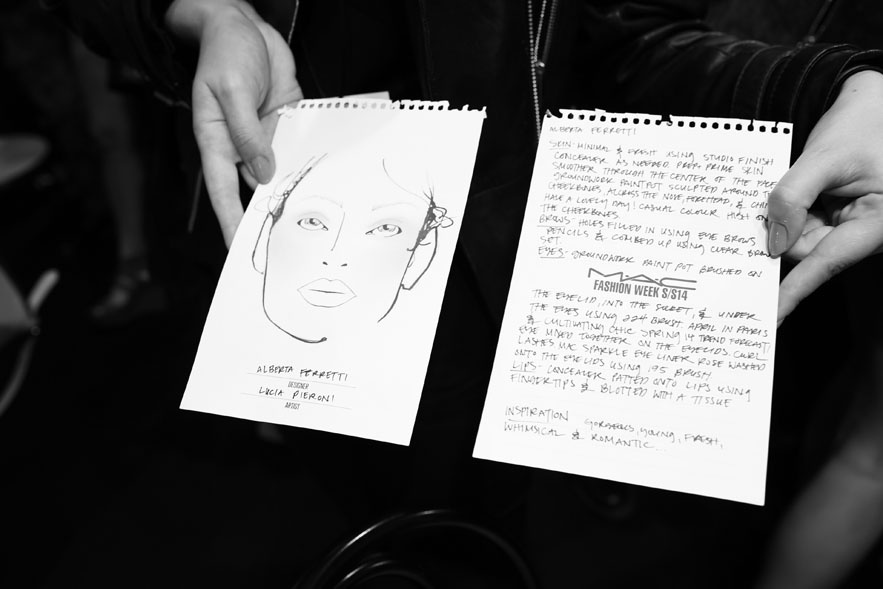 ALBERTA FERRETTI
DESIGNER
LUCIA PIERONI
ARTIST
ALBERTA FERRETTI
SKIN- MINIMAL & FRESH USING STUDIO FINISH
CONCEALER AS NEEDED. PREP+PRIME SKIN
SMOOTHER THROUGH THE CENTER OF THE FACE
GROUNDWORK PAINT POT SCULPTED AROUND THE
CHEEKBONES, ACCROSS THE NOSE, FOREHEAD, & CHIN
HAVE A LOVELY DAY! CASUAL COLOUR HIGH ON
THE CHEEKBONES.
BROWS- HOLES FILLED IN USING EYE BROWS
PENCILS & COMBED UP USING CLEAR BROW
SET.
EYES- GROUNDWORK PAINT POT BRUSHED ON
M·A·C
FASHION WEEK S/S14
THE EYELID, INTO THE SOCKET, & UNDER
THE EYES USING 224 BRUSH. APRIL IN PARIS
& CULTIVATING CHIC SPRING 14 TREND FORECAST/
EYE MIXED TOGETHER ON THE EYELIDS. CURL
LASHES MAC SPARKLE EYE LINER ROSE WASHED
ONTO THE EYELIDS USING 195 BRUSH
LIPS- CONCEALER PATTED ONTO LIPS USING
FINGERTIPS & BLOTTED WITH A TISSUE
INSPIRATION GORGEOUS, YOUNG, FRESH,
WHIMSICAL & ROMANTIC...